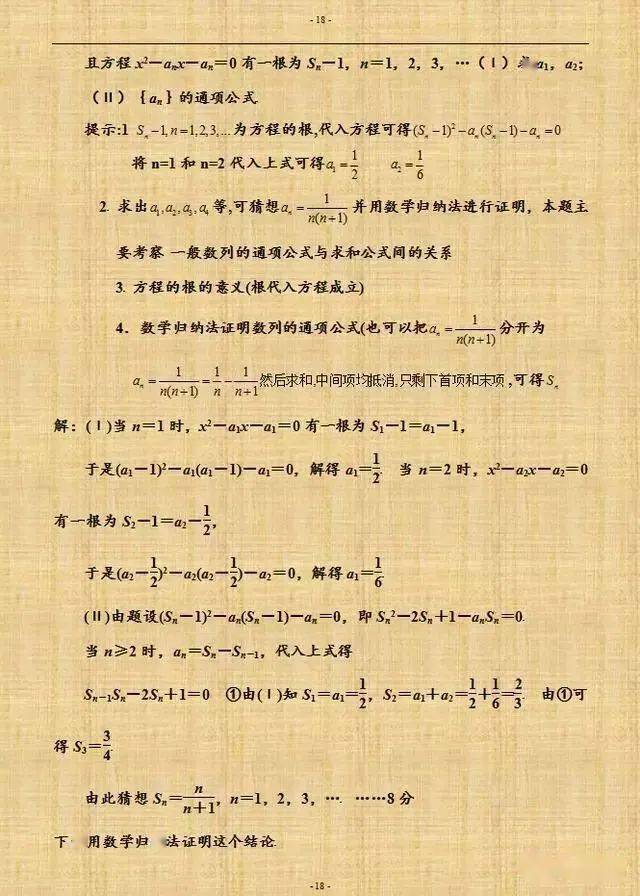 - 18 -
且方程 x²－aₙx－aₙ＝0 有一根为 Sₙ－1，n＝1，2，3，…（Ⅰ） a₁，a₂；
（II）｛aₙ｝的通项公式.
提示:1 Sₙ－1,n=1,2,3,...为方程的根,代入方程可得(Sₙ－1)²－aₙ(Sₙ－1)－aₙ=0
将 n=1 和 n=2 代入上式可得a₁=1/2 a₂=1/6
2. 求出a₁,a₂,a₃,a₄等,可猜想aₙ=1/n(n+1) 并用数学归纳法进行证明，本题主
要考察 一般数列的通项公式与求和公式间的关系
3. 方程的根的意义(根代入方程成立)
4．数学归纳法证明数列的通项公式(也可以把aₙ=1/n(n+1)分开为
aₙ=1/n(n+1)=1/n-1/n+1然后求和,中间项均抵消,只剩下首项和末项,可得Sₙ
解：(Ⅰ)当 n＝1 时，x²－a₁x－a₁＝0 有一根为 S₁－1＝a₁－1，
于是(a₁－1)²－a₁(a₁－1)－a₁＝0，解得 a₁＝1/2. 当 n＝2 时，x²－a₂x－a₂＝0
有一根为 S₂－1＝a₂－1/2，
于是(a₂－1/2)²－a₂(a₂－1/2)－a₂＝0，解得 a₁＝1/6.
(Ⅱ)由题设(Sₙ－1)²－aₙ(Sₙ－1)－aₙ＝0，即 Sₙ²－2Sₙ＋1－aₙSₙ＝0.
当 n≥2 时，aₙ＝Sₙ－Sₙ₋₁，代入上式得
Sₙ₋₁Sₙ－2Sₙ＋1＝0 ①由(Ⅰ)知 S₁＝a₁＝1/2，S₂＝a₁＋a₂＝1/2＋1/6＝2/3. 由①可
得 S₃＝3/4.
由此猜想 Sₙ＝n/n＋1，n＝1，2，3，…. ……8 分
下 用数学归 法证明这个结论.
- 18 -